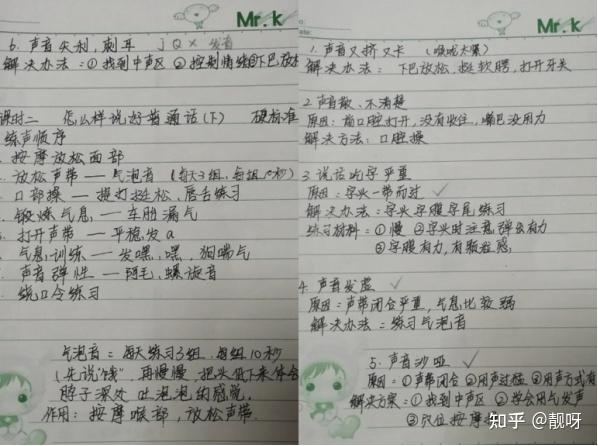 Mr.k
6. 声音尖利,刺耳 j Q X 发音
解决办法:①找到中声区 ②控制情绪③下巴放松
课时二 怎么样说好普通话(下) 硬标准
练声顺序
按摩放松面部
放松声带——气泡音(每天3组,每组10秒)
口部操——提打挺松、唇舌练习
锻炼气息——车胎漏气
打开声带——平稳发a
气息训练——发嘿,嘿,狗喘气
声音弹性——阿毛、螺旋音
绕口令练习
气泡音:每天练习3组,每组10秒
(先说"饿",再慢慢,把头低下来体会
脖子深处吐泡泡的感觉。
作用:按摩喉部,放松声带.
Mr.k
1. 声音又挤又卡 (喉咙太紧)
解决办法:下巴放松,挺软腭,打开牙关
2. 声音散、不清楚
原因:前口腔打开,没有收住,嘴巴没用力
解决方法:口腔操
3. 说话吃字严重
原因:字头一带而过
解决办法:字头字腹字尾练习
练习材料:①慢 ②字头时注意弹出有力
③字腹有力,有颗粒感
4. 声音发虚
原因:声带闭合严重,气息比较弱
解决办法:练习气泡音
5. 声音沙哑
原因:①声带闭合 ②用声过猛 ③用声方式有
解决方案:①找到中声区 ②学会用气发声
③穴位按摩
知乎 @靓呀